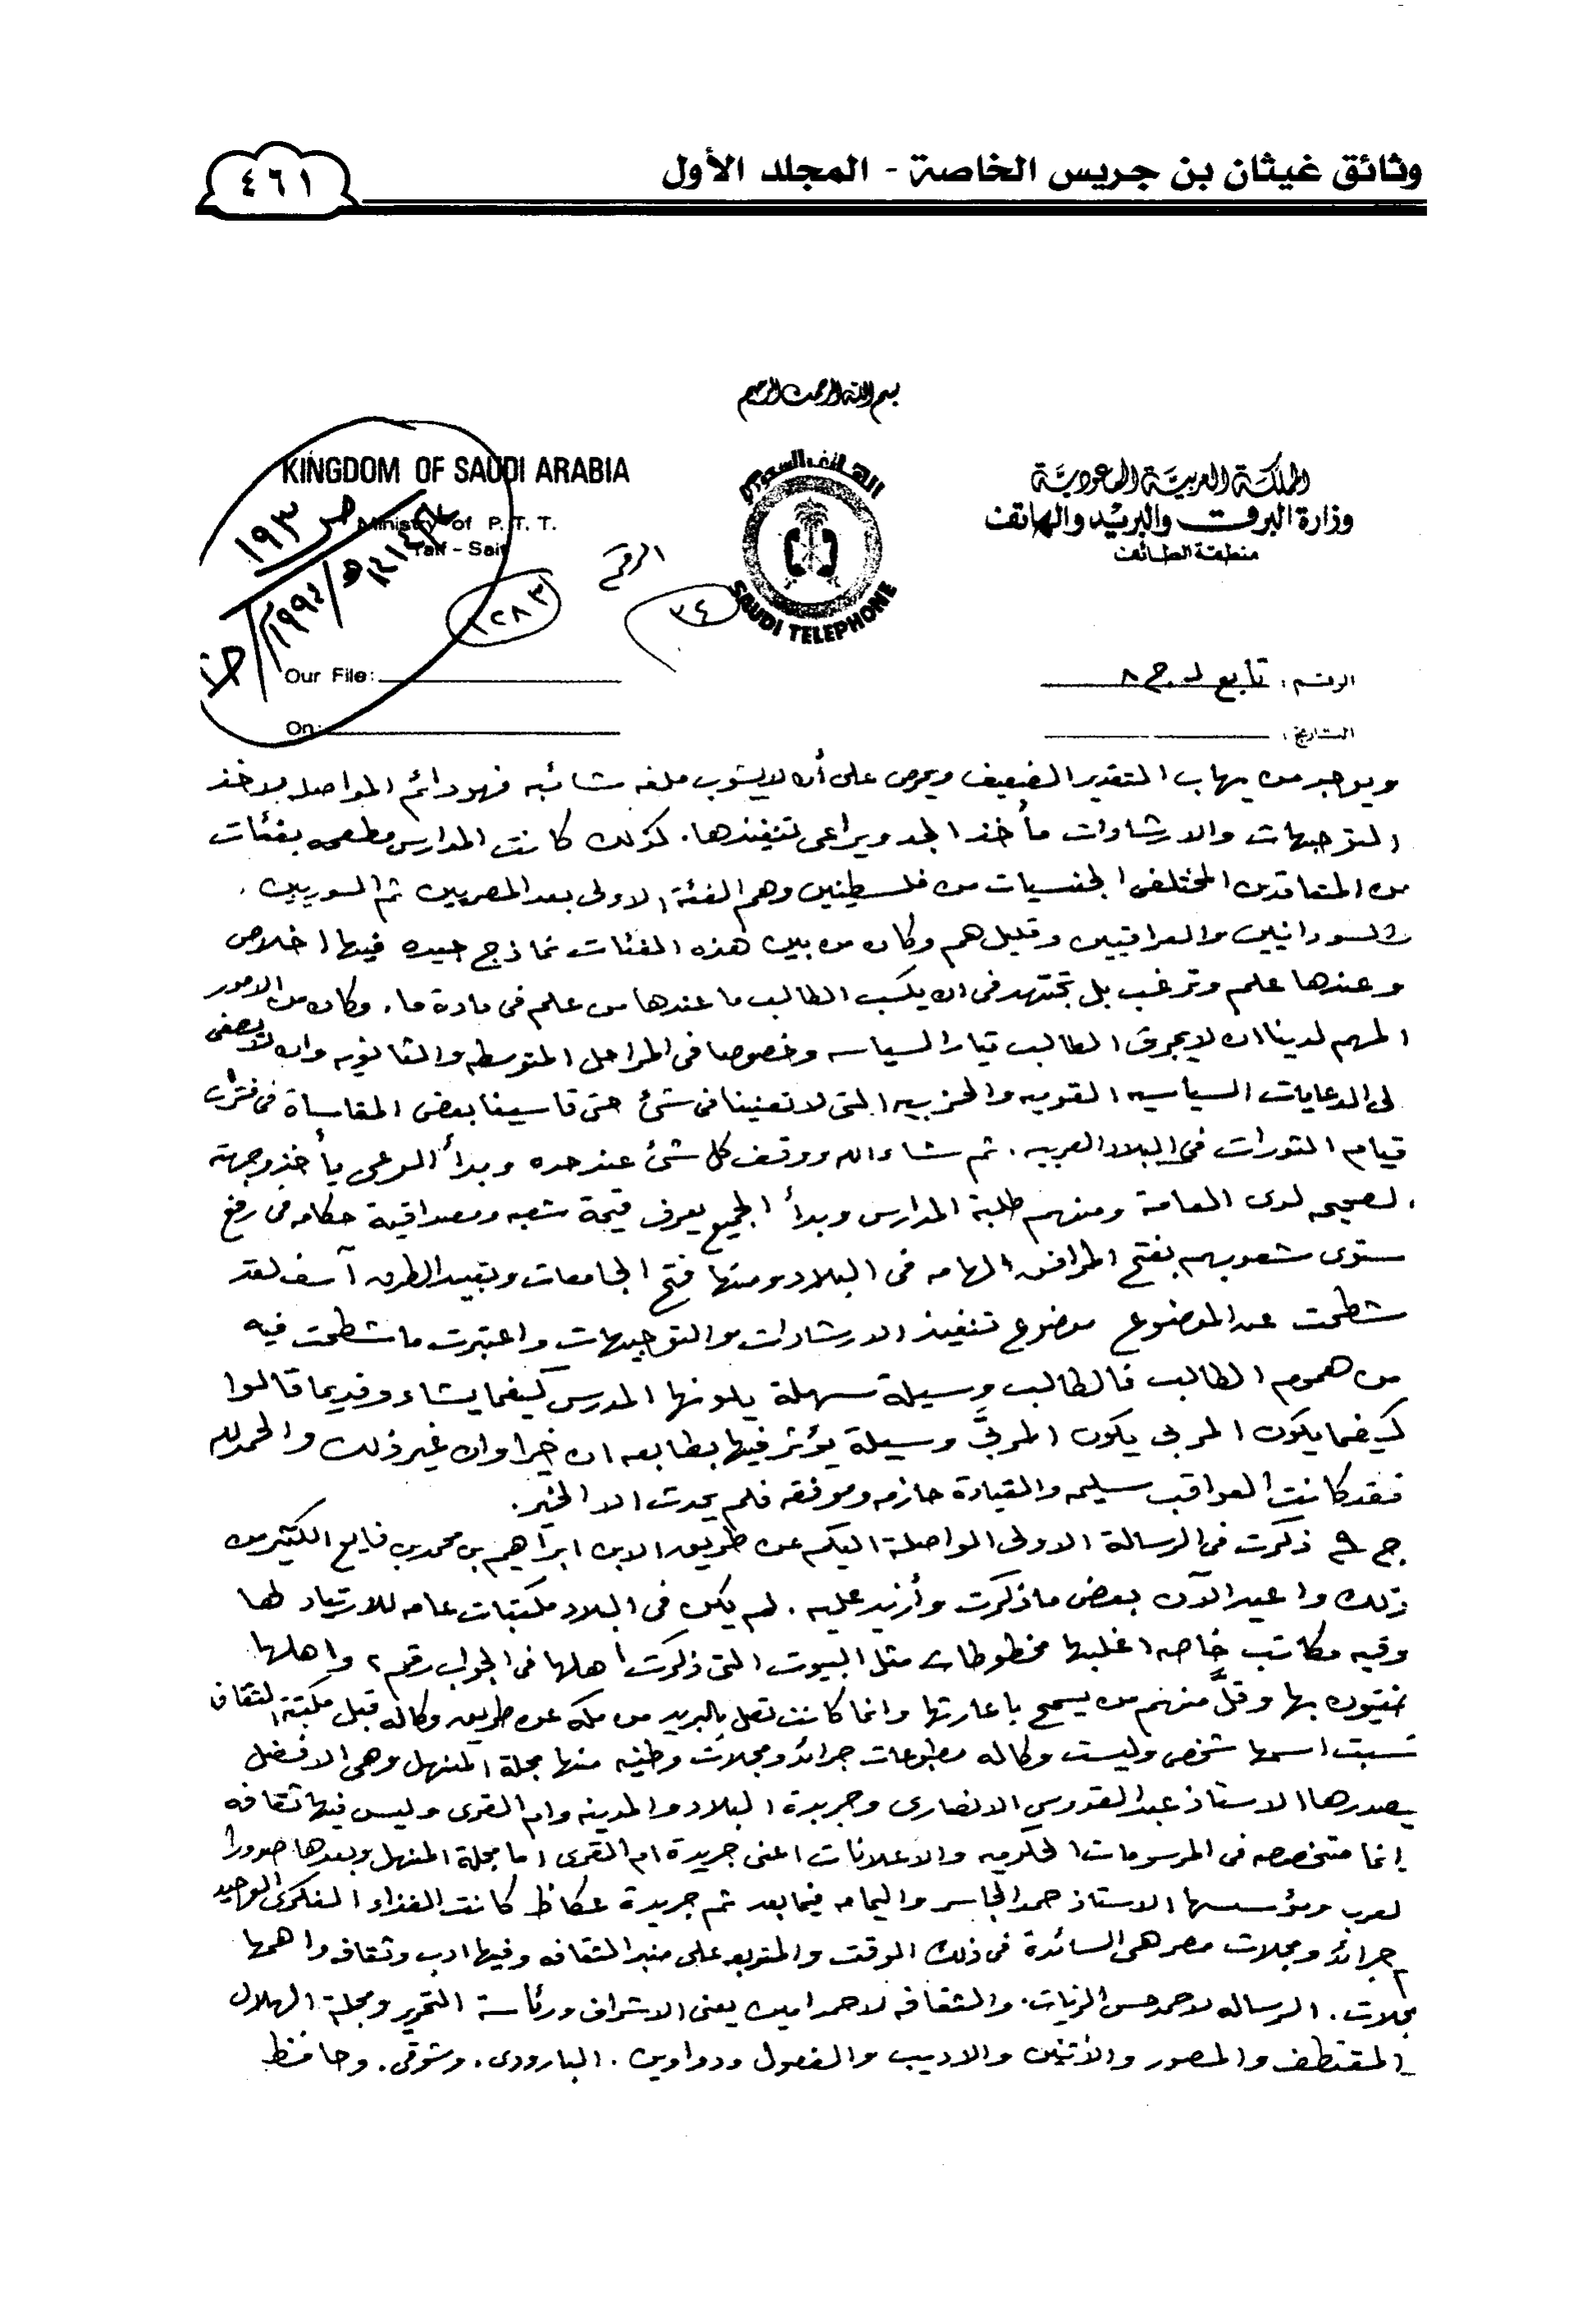 وثائق غيثان بن جريس الخاصة - المجلد الأول
٤٦١
بسم الله الرحمن الرحيم
KINGDOM OF SAUDI ARABIA
Ministry of P. T. T.
Taif - Sait
المملكة العربية السعودية
وزارة البرق والبريد والهاتف
منطقة الطائف
الهاتف السعودي
SAUDI TELEPHONE
ص ١٩٣
١٤١٤هـ / ١٩٩٤م
الرقم
٣٤
١٢٨٣
الرقم : تابع لـ ج ٨
Our File:
التاريخ :
On:
ويوجد من يهاب التقدير الضعيف ويحرص على أن لا يشوب ملفه شائبه فهو دائم المواصله بلاخذ
التوجيهات والارشادات مأخذ الجد ويراعى تنفيذها. كذلك كانت المدارس مطعمه بفئات
من المتعاقدين المختلفى الجنسيات من فلسطينين وهم الفئة الاولى بعد المصريين ثم السوريين .
والسودانيين والعراقيين وقليل هم وكان من بين هذه الفئات نماذج جيده فيها اخلاص
وعندها علم وترغب بل تجتهد فى ان يكسب الطالب ما عندها من علم فى مادة ما. وكان من الامور
المهم لدينا ان لا يجرف الطالب تيار السياسه وخصوصا فى المراحل المتوسطه والثانويه وان لا يصغى
لى الدعايات السياسيه القوميه والحزبيه التى لا تعنينا فى شئ حتى قاسينا بعض المقاساة فى فترات
قيام الثورات فى البلاد العربيه . ثم شاء الله ووقف كل شئ عند حده وبدأ الوعى يأخذ وجهته
لصحيحه لدى العامة ومنهم طلبة المدارس وبدأ الجميع يعرف قيمة شعبه ومصداقية حكامه فى رفع
ستوى شعوبهم بفتح المرافق الهامه فى البلاد ومنها فتح الجامعات وتعبيد الطرق آسف لقد
شطحت عن الموضوع موضوع تنفيذ الارشادات والتوجيهات واعتبرت ما شطحت فيه
من هموم الطالب فالطالب وسيلة سهلة يلونها المدرس كيفما يشاء وقديما قالوا
كيفما يكون المربى يكون المربَّى وسيلة يؤثر فيها بطابعه ان خيرا وان غير ذلك والحمد لله
فقد كانت العواقب سليمه والقيادة حازمه وموفقه فلم يحدث الا الخير.
ج ٩ ذكرت فى الرسالة الاولى الواصلة اليكم عن طريق الابن ابراهيم بن محمد بن فايع الكثير من
ذلك واعيد الآن بعض ما ذكرت وأزيد عليه . لم يكن فى البلاد مكتبات عامه للارتياد لها
وفيه مكاتب خاصه اغلبها مخطوطات مثل البيوت التى ذكرت اهلها فى الجواب رقم ٢ واهلها
ضنيون بها وقلَّ منهم من يسمح باعارتها وانما كانت تصل بالبريد من مكه عن طريق وكاله قبل مكتبة الثقاف
نسبت اسمها شخص وليست وكاله مطبوعات جرائد ومجلات وطنيه منها مجلة المنهل وهى الافضل
يصدرها الاستاذ عبد القدوس الانصارى وجريدة البلاد والمدينه وام القرى وليس فيها ثقافه
إنما متخصصه فى المرسومات الحكوميه والاعلانات اعنى جريدة ام القرى اما مجلة المنهل وبعدها صدورا
لعرب ومؤسسها الاستاذ حمد الجاسر واليمامه فيما بعد ثم جريدة عكاظ كانت الغذاء الفكرى الوحيد
جرائد ومجلات مصر هى السائدة فى ذلك الوقت والمتربعه على منبر الثقافه وفيها ادب وثقافه واهمها
مجلات . الرساله لاحمد حسن الزيات . والثقافه لاحمد امين يعنى الاشراف ورئاسة التحرير ومجلة الهلال
المقتطف والمصور والأثنين والاديب والفصول ودواوين . البارودى . وشوقى . وحافظ